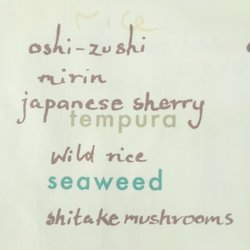 rice
oshi-zushi
mirin
japanese sherry
tempura
wild rice
seaweed
shitake mushrooms